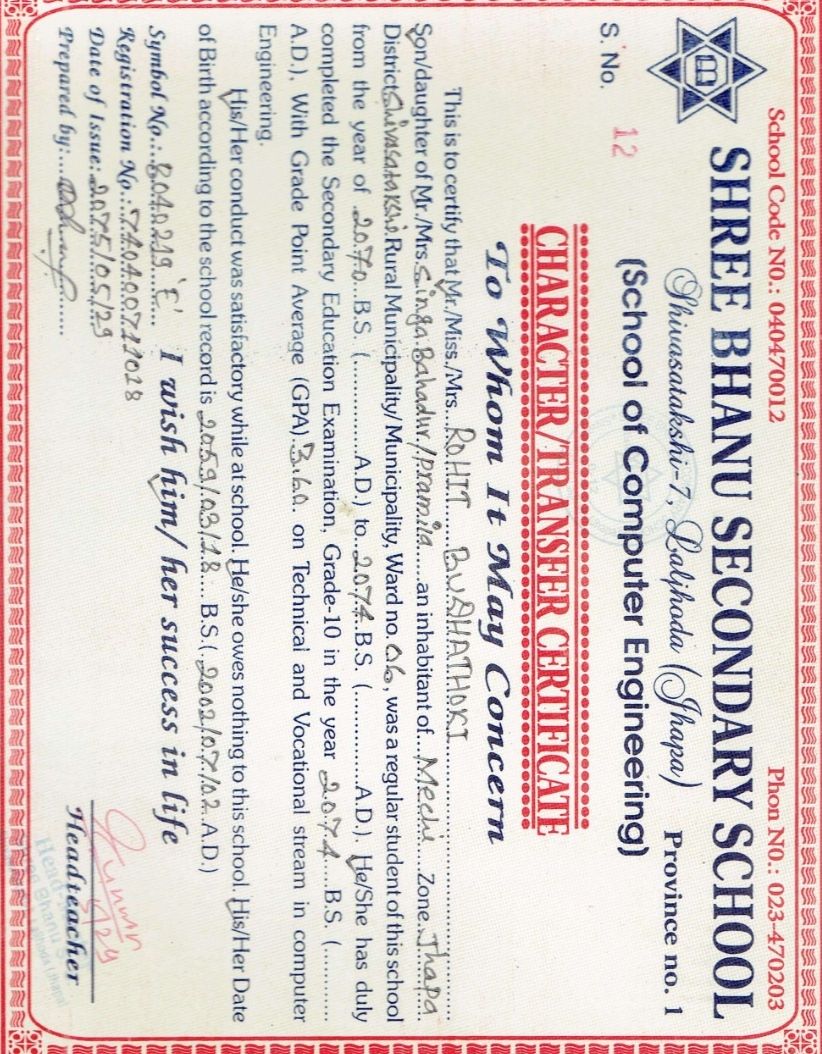 School Code N0.: 040470012 Phon N0.: 023-470203
SHREE BHANU SECONDARY SCHOOL
Shivasatakshi-7, Laljhoda (Jhapa) Province no. 1
(School of Computer Engineering)
S. No. 12
CHARACTER/TRANSFER CERTIFICATE
To Whom It May Concern
This is to certify that Mr./Miss./Mrs....ROHIT BUDHATHOKI
Son/daughter of Mr./Mrs. Singa Bahadur/Pramila ......an inhabitant of...Mechi...Zone. Jhapa
District Shivasatakshi Rural Municipality/ Municipality, Ward no. 06, was a regular student of this school
from the year of .2070.. B.S. (..............A.D.) to..2074. B.S. (.............A.D.). He/She has duly
completed the Secondary Education Examination, Grade-10 in the year 2074....B.S. (...........
A.D.). With Grade Point Average (GPA).3.60. on Technical and Vocational stream in computer
Engineering.
His/Her conduct was satisfactory while at school. He/she owes nothing to this school. His/Her Date
of Birth according to the school record is 2059/03/18.... B.S.( 2002/07/02. A.D.)
Symbol No.:..8040219 'E'....... I wish him/ her success in life
Registration No..:740400711018
Date of Issue:.2075/05/29
Prepared by:....
Headteacher